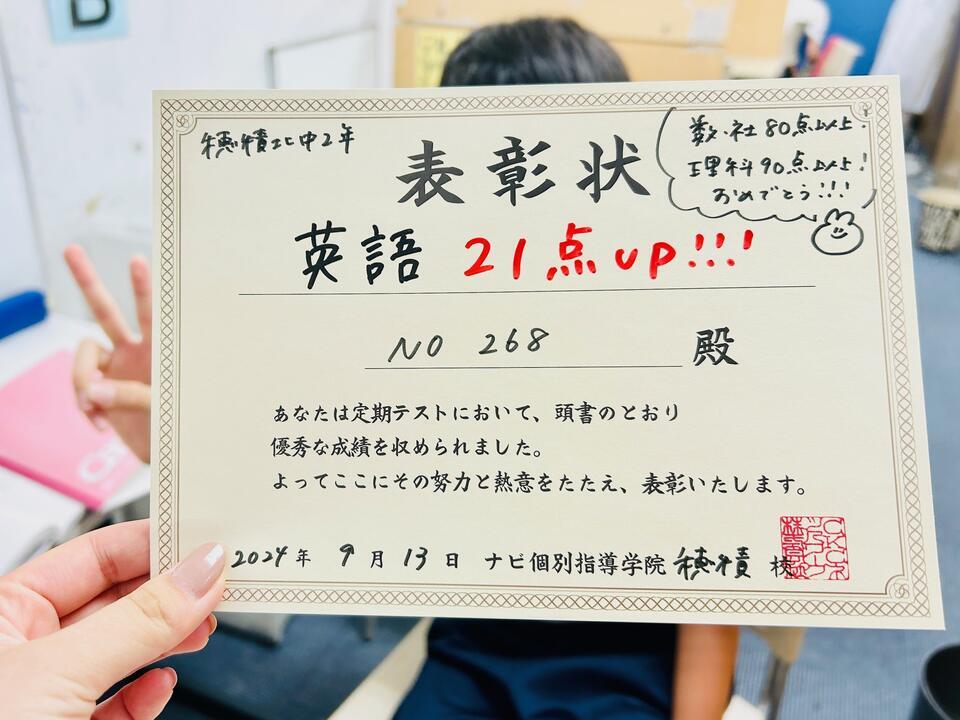 B
穂積北中2年
表彰状
数・社80点以上!
理科90点以上!
おめでとう!!!
英語 21点up!!!
NO 268 殿
あなたは定期テストにおいて、頭書のとおり
優秀な成績を収められました。
よってここにその努力と熱意をたたえ、表彰いたします。
2024年 9月 13日 ナビ個別指導学院 穂積 校